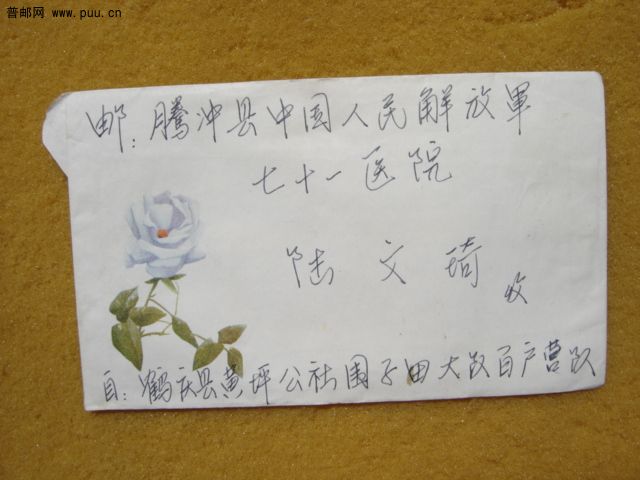 普邮网 www.puu.cn
邮：腾冲县中国人民解放軍
七十一医院
陆文琦 收
自：鹤庆县黄坪公社围子田大队百户营队